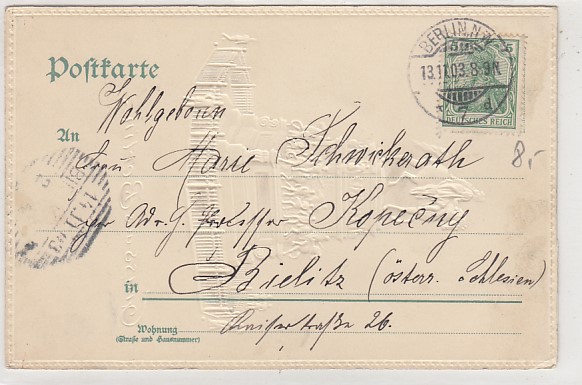 Postkarte
BERLIN, N.W.
5 5
13.11.03. 8-9N.
* 7 d
DEUTSCHES REICH
Wohlgeboren
An Frau Marie Schwickerath
per Adr. H. Professor Kopečny
8,-
14.11.03
in Bielitz (österr. Schlesien)
Wohnung Kaiserstraße 26.
(Straße und Hausnummer)